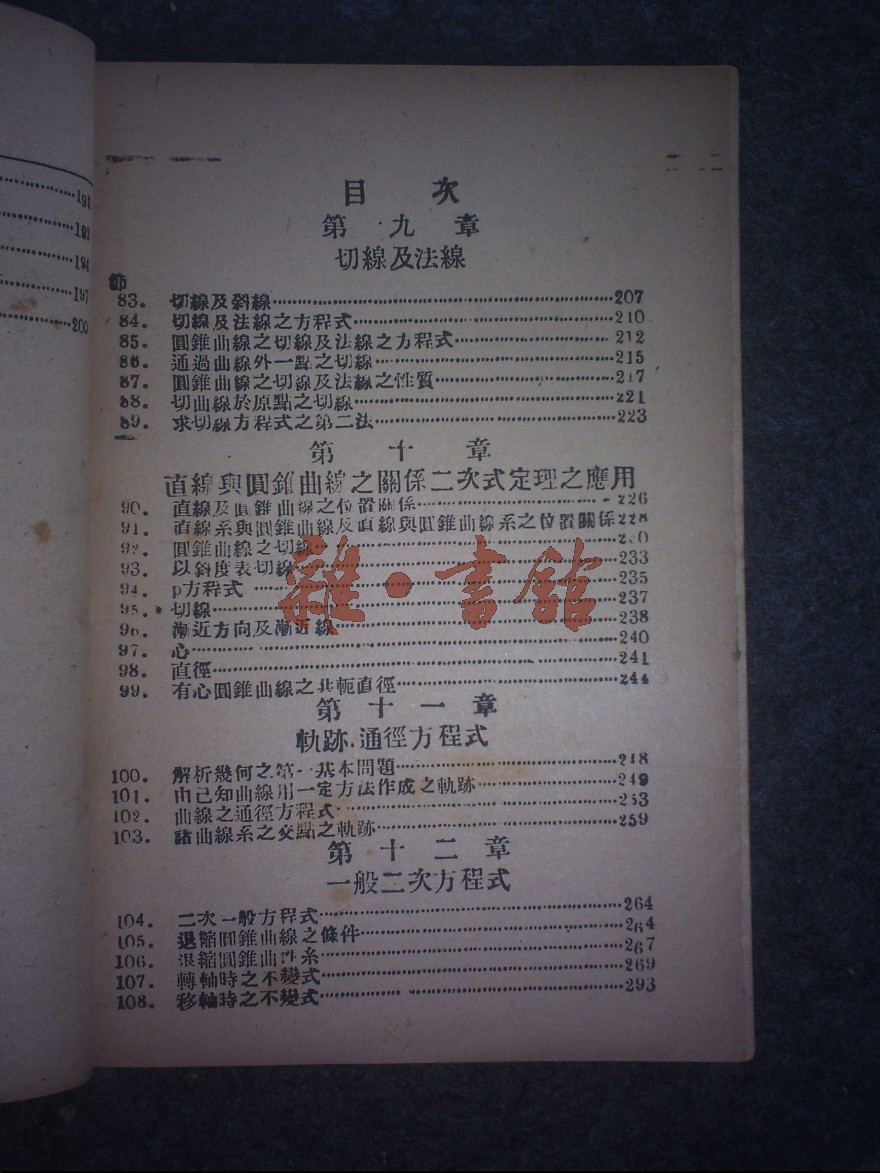 193
192
194
197
200
目 次
第 九 章
切線及法線
節
83. 切線及斜線 207
84. 切線及法線之方程式 210
85. 圓錐曲線之切線及法線之方程式 212
86. 通過曲線外一點之切線 215
87. 圓錐曲線之切線及法線之性質 217
88. 切曲線於原點之切線 221
89. 求切線方程式之第二法 223
第 十 章
直線與圓錐曲線之關係二次式定理之應用
90. 直線及圓錐曲線之位置關係 226
91. 直線系與圓錐曲線及直線與圓錐曲線系之位置關係 228
92. 圓錐曲線之切線
93. 以斜度表切線 233
94. p方程式 235
95. 切線 237
96. 漸近方向及漸近線 238
97. 心 240
98. 直徑 241
99. 有心圓錐曲線之共軛直徑 244
第 十 一 章
軌跡.通徑方程式
100. 解析幾何之第一基本問題 248
101. 由已知曲線用一定方法作成之軌跡 249
102. 曲線之通徑方程式 253
103. 諸曲線系之交點之軌跡 259
第 十 二 章
一般二次方程式
104. 二次一般方程式 264
105. 退縮圓錐曲線之條件 264
106. 退縮圓錐曲 系 267
107. 轉軸時之不變式 269
108. 移軸時之不變式 293
雜·書館